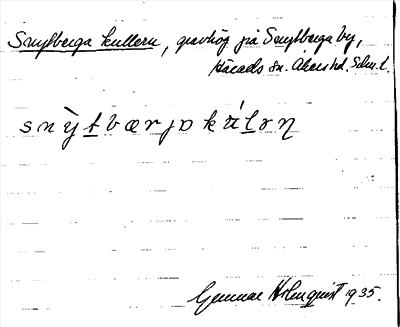 Snytberga kullern, gravhög på Snytberga by,
Härads sn. Åkers hd. Södm. l.
snỳt bærja kúlərn
Gunnar Holmquist 1935.